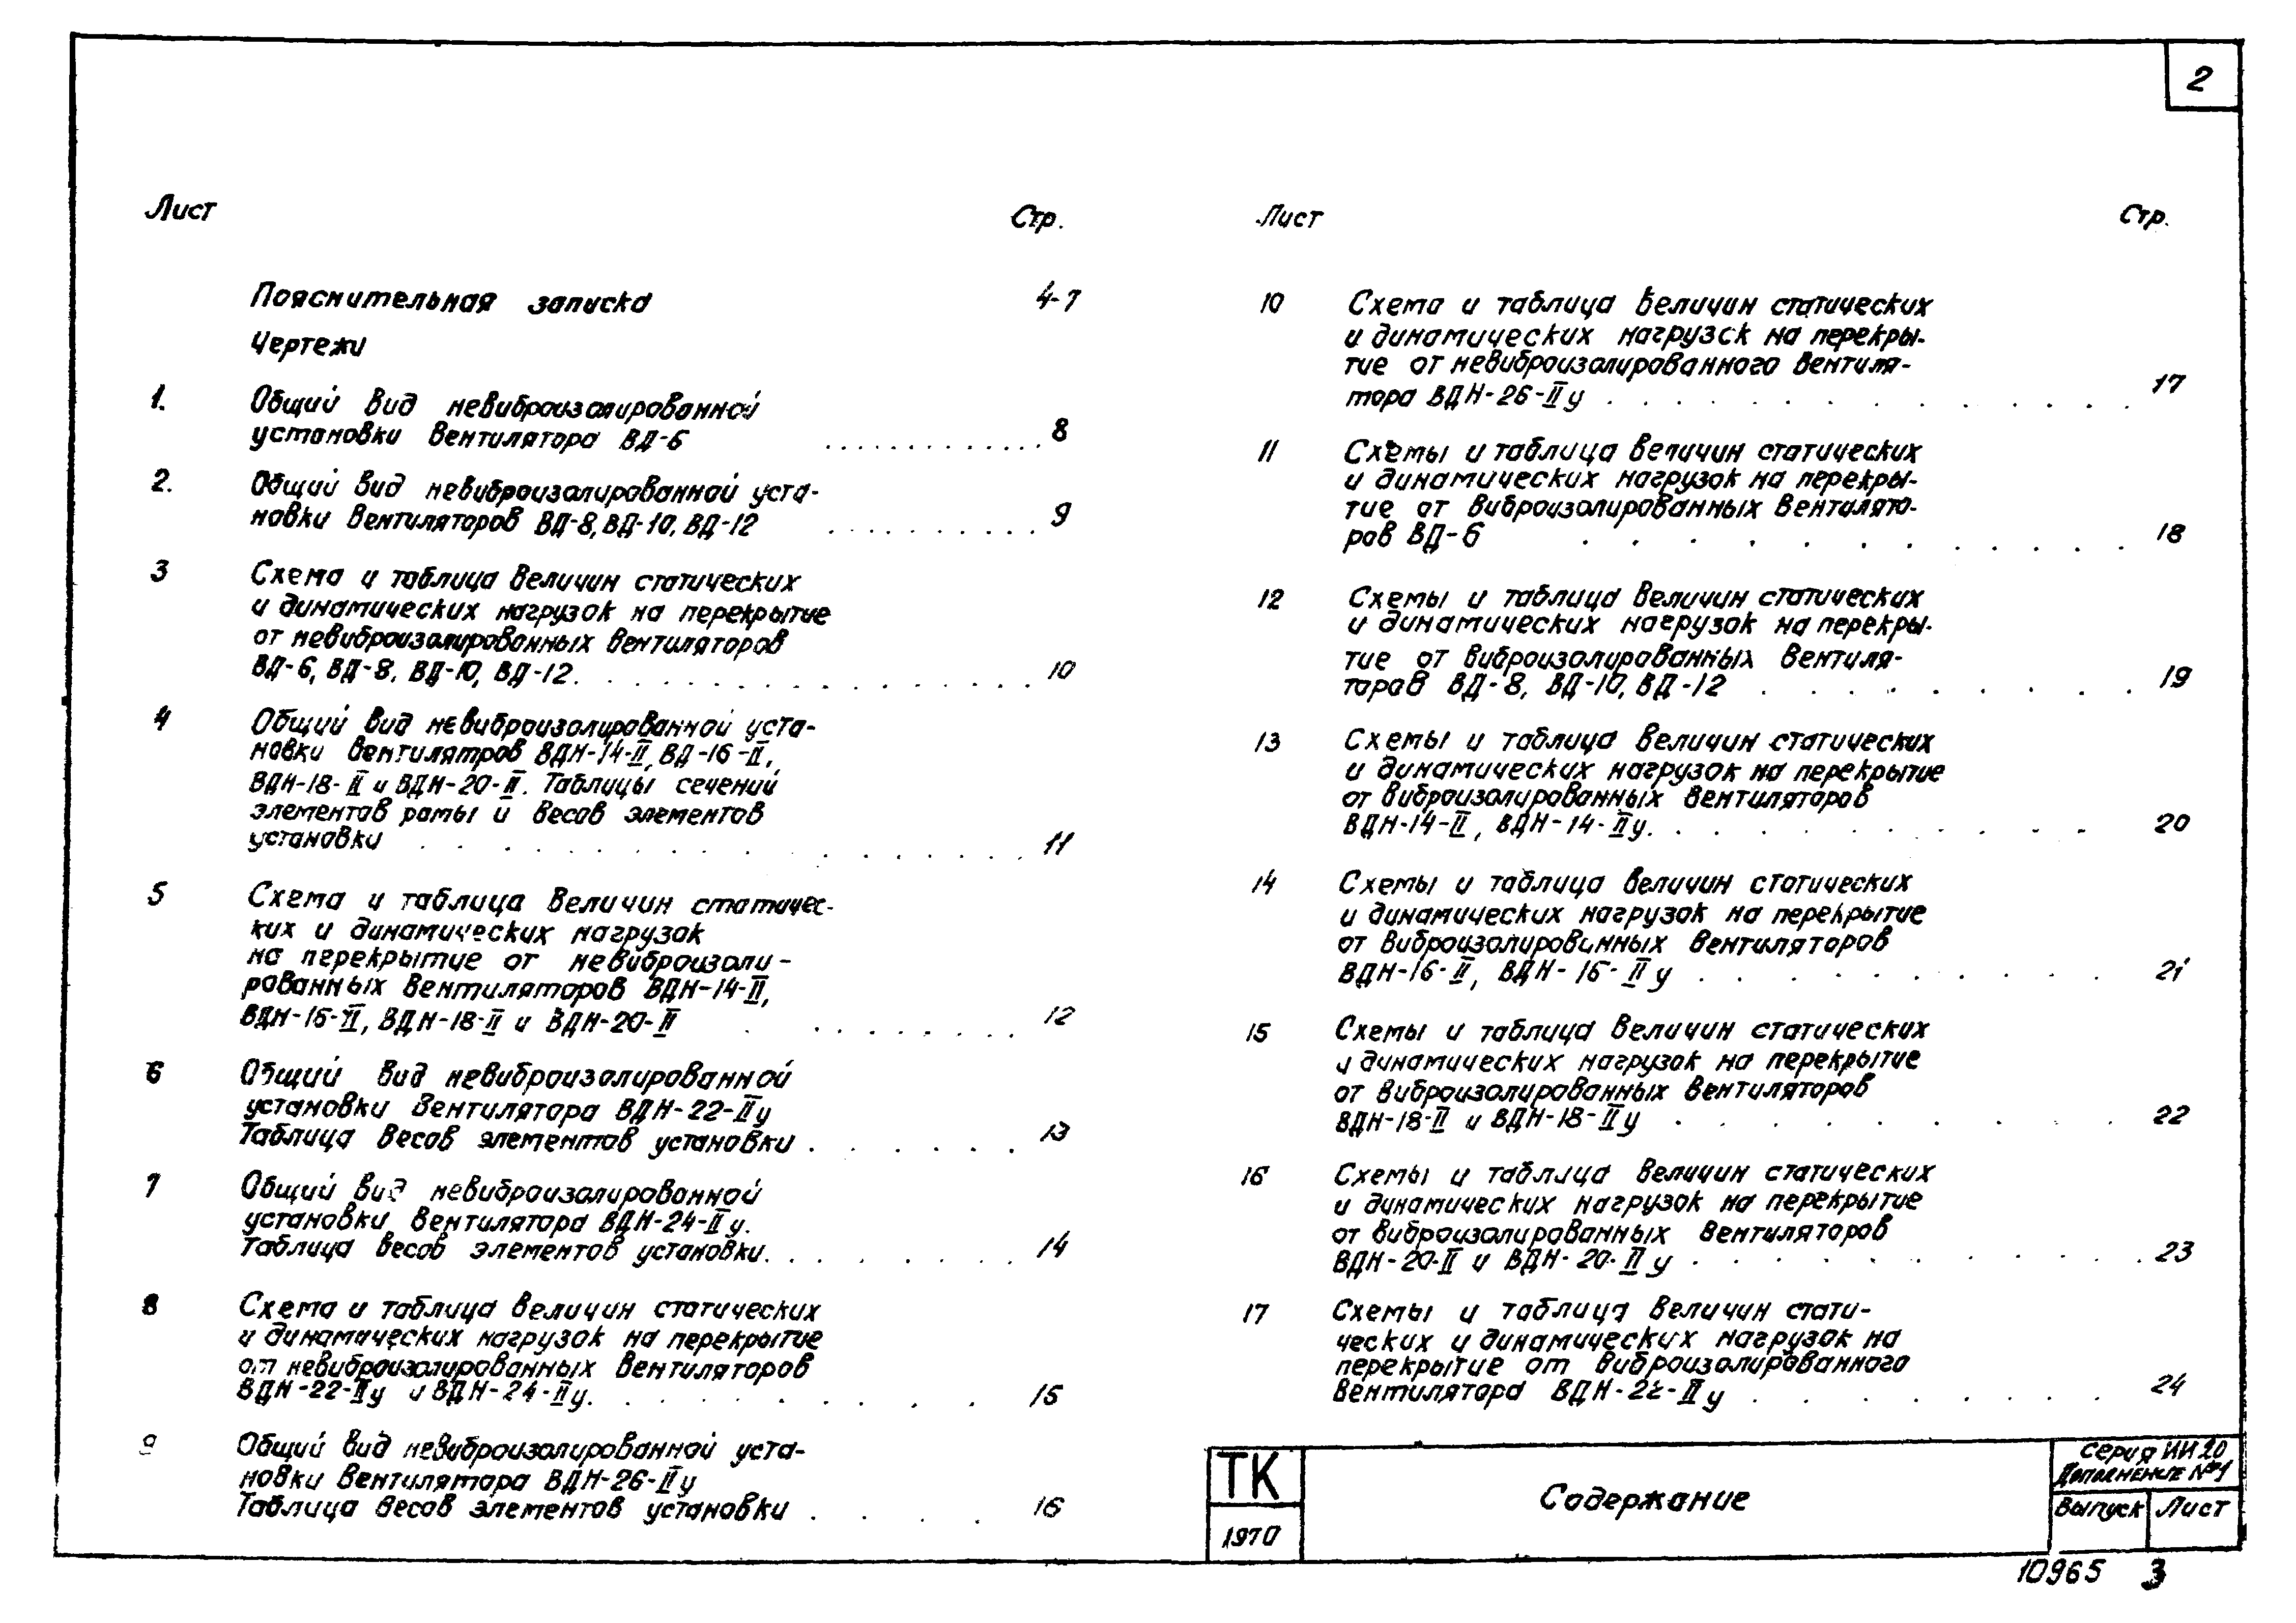 2
Лист Стр.
Пояснительная записка 4-7
Чертежи
1. Общий вид невиброизолированной
установки вентилятора ВД-6 8
2. Общий вид невиброизолированной уста-
новки вентиляторов ВД-8, ВД-10, ВД-12 9
3 Схема и таблица величин статических
и динамических нагрузок на перекрытие
от невиброизолированных вентиляторов
ВД-6, ВД-8, ВД-10, ВД-12. 10
4 Общий вид невиброизолированной уста-
новки вентилятров ВДН-14-II, ВД-16-II,
ВДН-18-II и ВДН-20-II. Таблицы сечений
элементов рамы и весов элементов
установки 11
5 Схема и таблица величин статичес-
ких и динамических нагрузок
на перекрытие от невиброизоли-
рованных вентиляторов ВДН-14-II,
ВДН-16-II, ВДН-18-II и ВДН-20-II 12
6 Общий вид невиброизолированной
установки вентилятора ВДН-22-IIу
Таблица весов элементов установки 13
7 Общий вид невиброизолированной
установки вентилятора ВДН-24-IIу.
Таблица весов элементов установки. 14
8 Схема и таблица величин статических
и динамических нагрузок на перекрытие
от невиброизолированных вентиляторов
ВДН-22-IIу и ВДН-24-IIу. 15
9 Общий вид невиброизолированной уста-
новки вентилятора ВДН-26-IIу
Таблица весов элементов установки 16
Лист Стр.
10 Схема и таблица величин статических
и динамических нагрузок на перекры-
тие от невиброизолированного вентиля-
тора ВДН-26-IIу 17
11 Схемы и таблица величин статических
и динамических нагрузок на перекры-
тие от виброизолированных вентилято-
ров ВД-6 18
12 Схемы и таблица величин статических
и динамических нагрузок на перекры-
тие от виброизолированных вентиля-
торов ВД-8, ВД-10, ВД-12 19
13 Схемы и таблица величин статических
и динамических нагрузок на перекрытие
от виброизолированных вентиляторов
ВДН-14-II, ВДН-14-IIу. 20
14 Схемы и таблица величин статических
и динамических нагрузок на перекрытие
от виброизолированных вентиляторов
ВДН-16-II, ВДН-16-IIу 21
15 Схемы и таблица величин статических
и динамических нагрузок на перекрытие
от виброизолированных вентиляторов
ВДН-18-II и ВДН-18-IIу 22
16 Схемы и таблица величин статических
и динамических нагрузок на перекрытие
от виброизолированных вентиляторов
ВДН-20-II и ВДН-20-IIу 23
17 Схемы и таблица величин стати-
ческих и динамических нагрузок на
перекрытие от виброизолированного
вентилятора ВДН-22-IIу 24
ТК
1970
Содержание
Серия ИИ 20
Дополнение №1
Выпуск Лист
10965 3